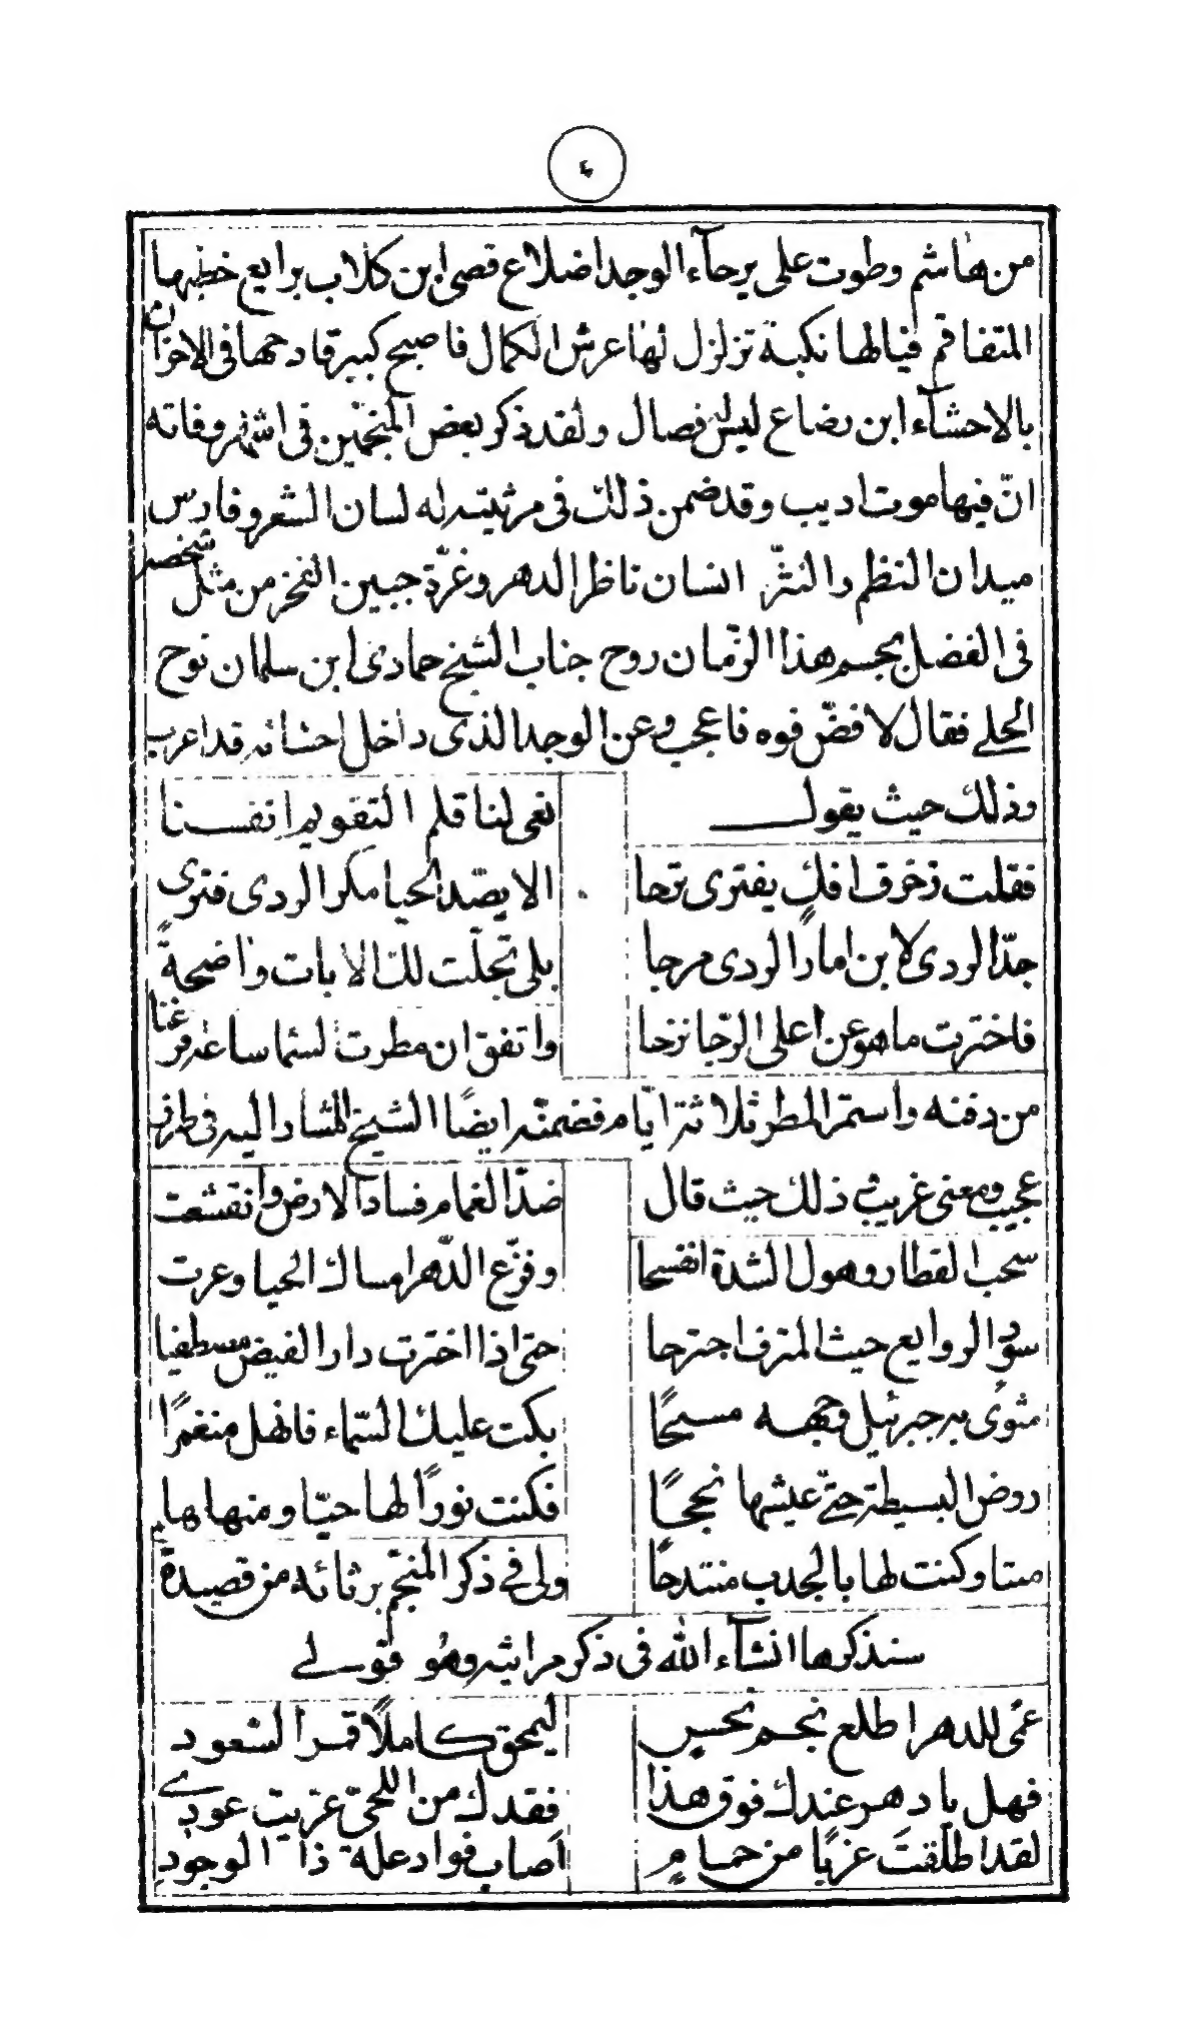 ٤
من هاشم وطوت على برحآء الوجد اضلاع قصى ابن كلاب برايع خطبها
المتفاقم فيالها نكبة تزلزل لها عرش الكمال فاصبح كبير قادحها فى الاحزان
بالاحشآء ابن رضاع ليس له فصال ولقد ذكر بعض المنجّمين فى اشهر وفاته
انّ فيها موت اديب وقد ضمن ذلك فى مرثيته له لسان الشعر وفارس
ميدان النظم والنثر انسان ناظر الدهر وغرّة جبين الفخر من مثل شخصه
فى الفضل بجسم هذا الزّمان روح جناب الشيخ حمادى ابن سلمان نوح
الحلى فقال لا فضّ فوه فاعجب وعن الوجد الذى داخل احشائه قد اعرب
وذلك حيث يقول نعى لنا قلم التقويم انفسنا
فقلت زخرف افك يفترى ترحا الا يصّد الحيا مكر الردى فترى
جدّ الردى لابن امار الردى مرحا بلى تجلّت لك الايات واضحةً
فاخترت ما هو عن اعلى الرّجا نزحا واتفق ان مطرت لسما ساعة فرغنا
من دفنه واستمرّ المطر ثلاثة ايّام فضمنّه ايضًا الشيخ المشار اليه فى طرز
عجيب ومعنى غريب ذلك حيث قال ضدّ الغمام فساد الارض وانقشعت
سحب القطار وهول الشدة انفسحا وفزّع الدّهر امساك الحيا وعرت
سود الروايع حيث المترف اجترحا حتى اذا اخترت دار الفيض مصطفيا
مثوًى به جبرئيل وجهه مسحًا بكت عليك السّماء فانهل منغمرًا
روض البسيطة حتّى عيشها نجحًا فكنت نورًا لها حيّا ومنهلها
ميتا وكنت لها بالجدب منتدحًا ولى فى ذكر المنجّم برثائه من قصيدة
سنذكرها انشآء الله فى ذكر مراثيه وهو قولى
عمى للدهر اطلع نجم نحس ليمحق كاملًا قمر السعود
فهل يا دهر عندك فوق هذا فقدك من اللحى عريت عودى
لقد اطلقت عربًا من حمام اصاب فواد علة ذا الوجود